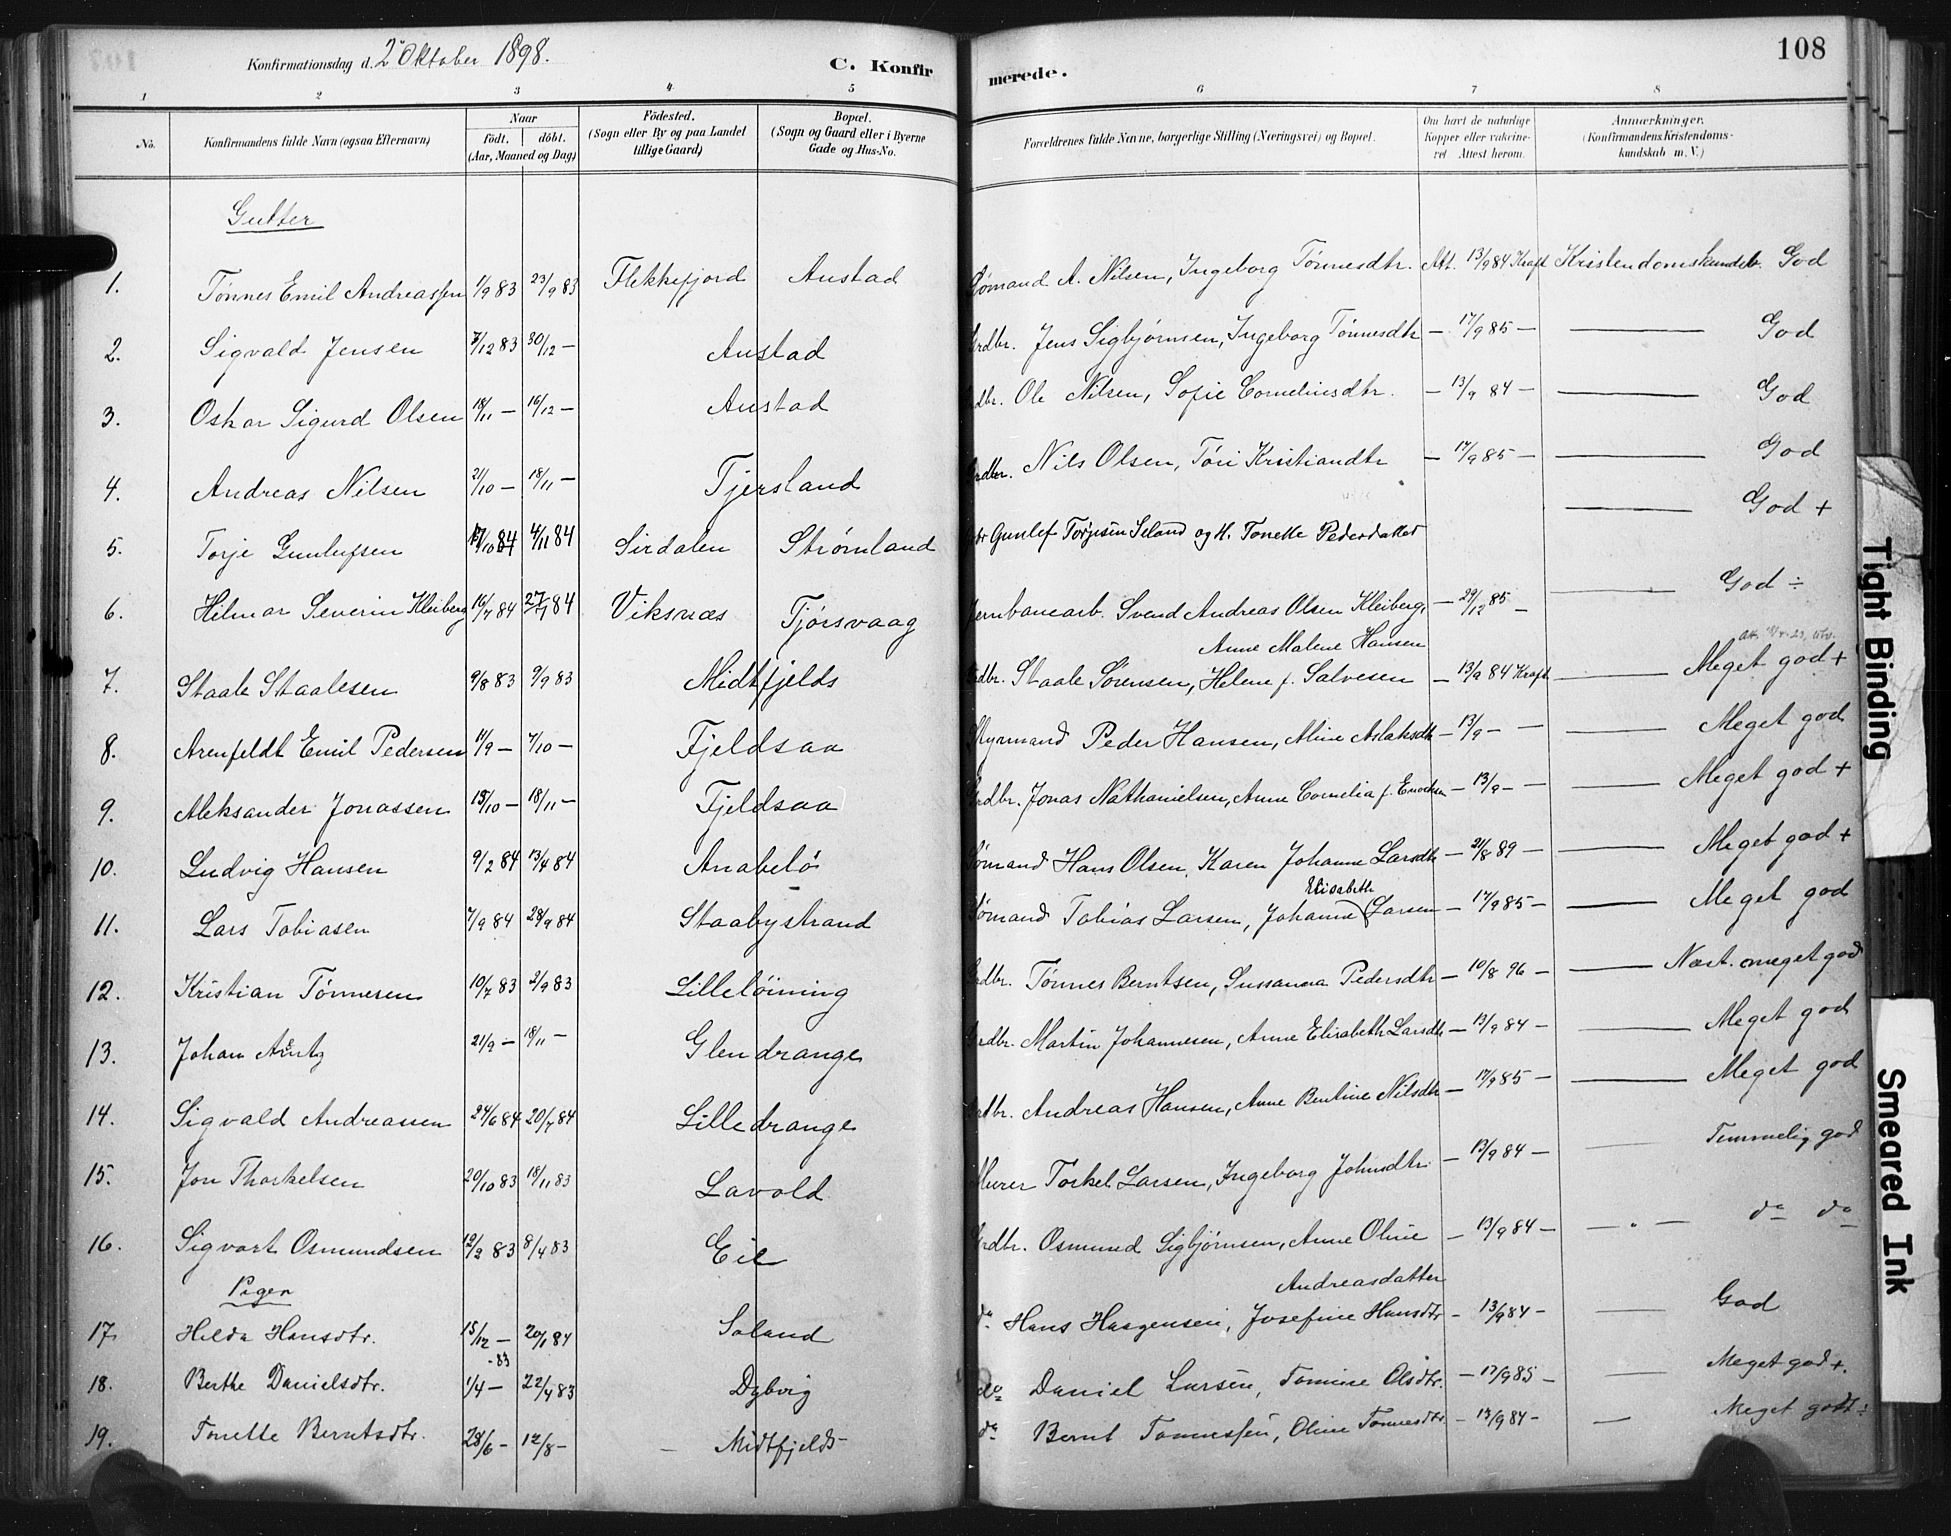 Konfirmationsdag d. 2 Oktober 1898. C. Konfirmerede. 108
1 2 3 4 5 6 7 8
No. Konfirmandens fulde Navn (ogsaa Efternavn) Naar født. døbt. (Aar, Maaned og Dag) Fødested. (Sogn eller By og paa Landet tillige Gaard) Bopæl. (Sogn og Gaard eller i Byerne Gade og Hus-No. Forældrenes fulde Navne, borgerlige Stilling (Næringsvei) og Bopæl. Om havt de naturlige Kopper eller vakcineret Attest herom. Anmærkninger. (Konfirmandens Kristendomskundskab m. V.)
Gutter
1. Tönnes Emil Andreassen 1/9 83 23/9 83 Flekkefjord Austad Sømand A. Nilsen, Ingeborg Tönnesdtr. Att. 13/9 84 Kraft Kristendomskundsk. God
2. Sigvald Jensen 7/12 83 30/12 — Austad Grdbr. Jens Sigbjørnsen, Ingeborg Tönnesdtr — 17/9 85 — God
3. Oskar Sigurd Olsen 18/11 — 16/12 — Austad Grdbr. Ole Nilsen, Sofie Corneliusdtr. — 13/9 84 — God
4. Andreas Nilsen 2/10 — 18/11 — Tjersland Grdbr. Nils Olsen, Töri Kristiandtr — 17/9 85 — God
5. Torje Gunlufsen 84 4/11 84 Sirdalen Strømland Gunlef Torjesen Seland og H. Tonette Pedersdatter God +
6. Hilmar Severin Kleiberg 16/7 84 27/7 84 Viksnæs Tjørsvaag Jernbanearb. Svend Andreas Olsen Kleiberg, — 29/12 85 — God ÷
Anne Malene Hansen
7. Staale Staalesen 9/8 83 9/9 83 Midtfjelds Grdbr. Staale Sörensen, Helene f. Salvesen — 13/9 84 Kraft Meget god +
8. Arenfeldt Emil Pedersen 11/9 — 7/10 — Fjeldsaa Styrmand Peder Hansen, Aline Aslaksdtr — 13/9 — — Meget god
9. Aleksander Jonassen 15/10 — 18/11 — Fjeldsaa Grdbr. Jonas Nathanielsen, Anne Cornelia f. Enocksen — 13/9 — — Meget god +
10. Ludvig Hansen 9/2 84 13/4 84 Anabelö Sømand Hans Olsen, Karen Johanne Larsdtr — 21/8 89 — Meget god +
11. Lars Tobiasen 7/9 84 28/9 84 Staabystrand Sømand Tobias Larsen, Johanne Elisabeth Larsen — 17/9 85 — Meget god
12. Kristian Tönnesen 10/7 83 2/9 83 Lillelöining Grdbr. Tønnes Berntsen, Sussanna Pedersdtr — 10/8 96 — Næst. meget god
13. Johan Arentz 21/9 — 18/11 — Glendrange Grdbr. Martin Johannesen, Anne Elisabeth Larsdtr — 13/9 84 — Meget god
14. Sigvald Andreassen 24/6 84 20/7 84 Lilledrange Grdbr. Andreas Hansen, Anne Bentine Nilsdtr — 17/9 85 — Meget god
15. Jon Thorkelsen 20/10 83 18/11 83 Lavold Murer Torkel Larsen, Ingeborg Johnsdtr. — 13/9 84 — Temmelig god
16. Sigvart Osmundsen 12/2 83 8/4 83 Eie Grdbr. Osmund Sigbjørnsen, Anne Oline — 13/9 84 — do do
Andreasdatter
Piger
17. Hilda Hansdtr. 15/12 — 83 20/1 84 Soland do Hans Haagensen, Josefine Hansdtr — 13/9 84 — God
18. Berthe Danielsdtr. 1/4 — 22/4 83 Dybvig do Daniel Larsen, Tomine Olsdtr. — 17/9 85 — Meget god +.
19. Tonette Berntsdtr. 28/6 — 12/8 — — Midtfjelds do Bernt Tønnessen, Oline Tønnesdtr — 13/9 84 — Meget godt ÷
Tight Binding
Smeared Ink